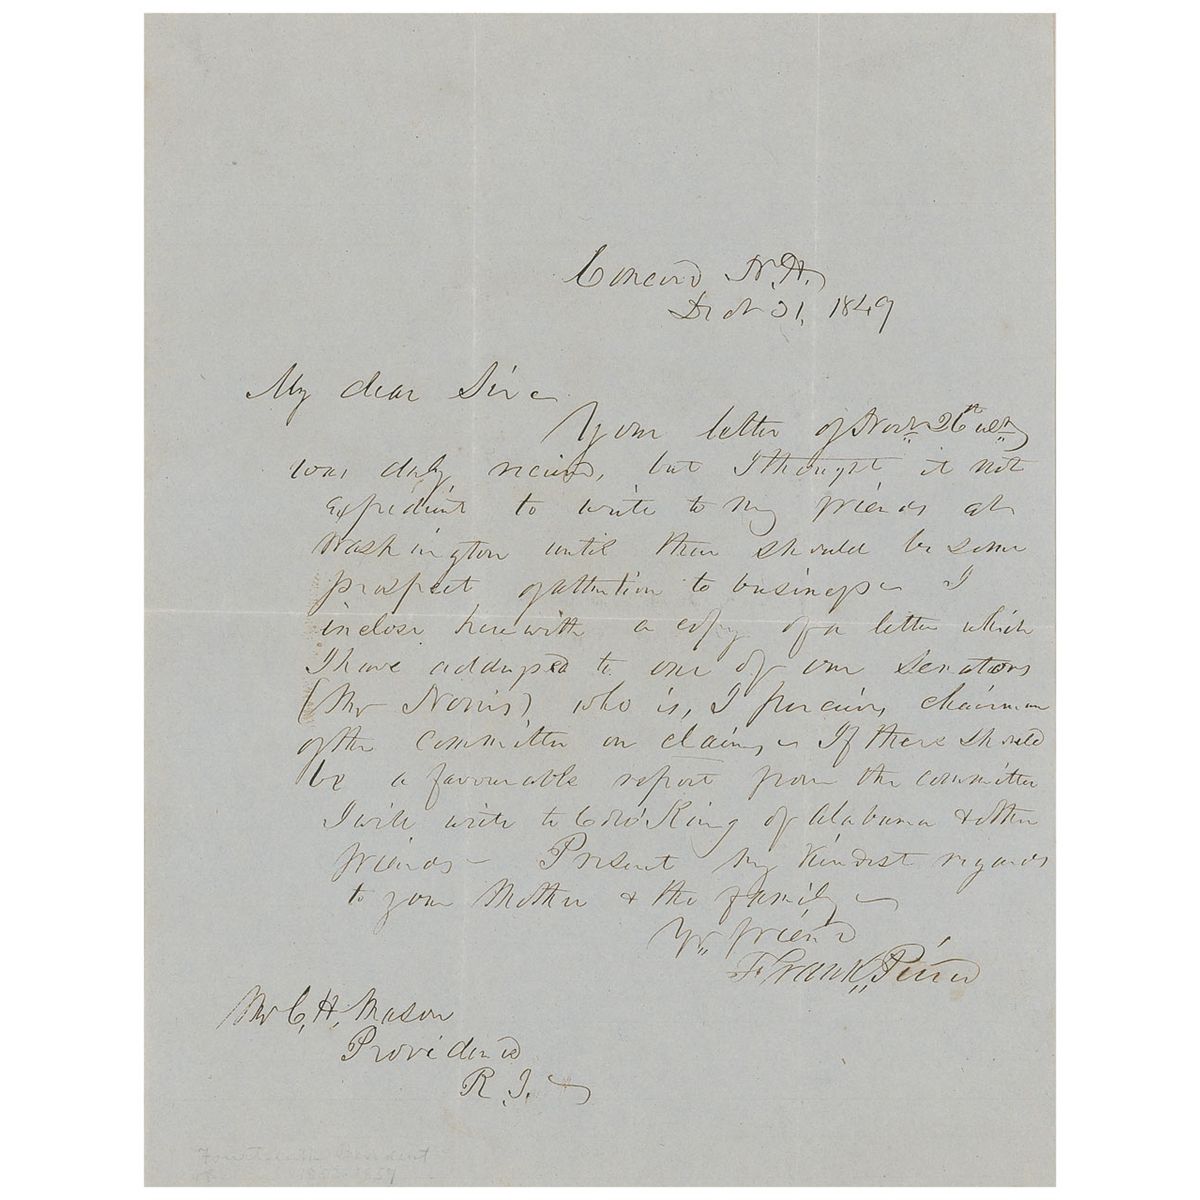 Concord N.H.
Decr 31, 1849
My dear Sir
Your letter of Novr 26th ulto
was duly received, but I thought it not
expedient to write to my friends at
Washington until there should be some
prospect of attention to business I
inclose herewith a copy of a letter which
I have addressed to one of our Senators
(Mr Norris) who is, I perceive, chairman
of the committee on claims If there should
be a favourable report from the committee
I will write to Colo King of Alabama & other
friends Present my kindest regards
to your Mother & the family
Yr friend
Frank. Pierce
Mr C. H. Mason
Providence
R. I.
Fourteenth President
1853-1857